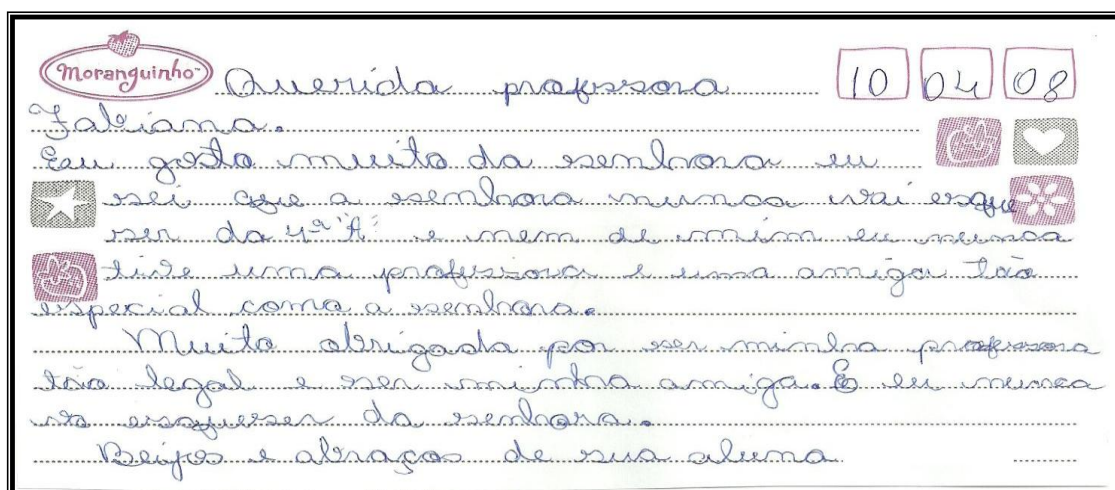 Moranguinho Querida professora 10 04 08
Fabiana.
Eeu gosto muito da senhora eu
sei que a senhora nunca vai esque
ser da 4ª "A" e nem de mim eu nunca
tive uma professora e uma amiga tão
especial como a senhora.
Muito obrigada por ser minha professora
tão legal e ser minha amiga. E eu nunca
vo esqueser da senhora.
Beijos e abraços de sua aluna